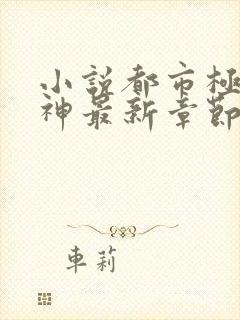 小説都市極
神最新章節
車莉